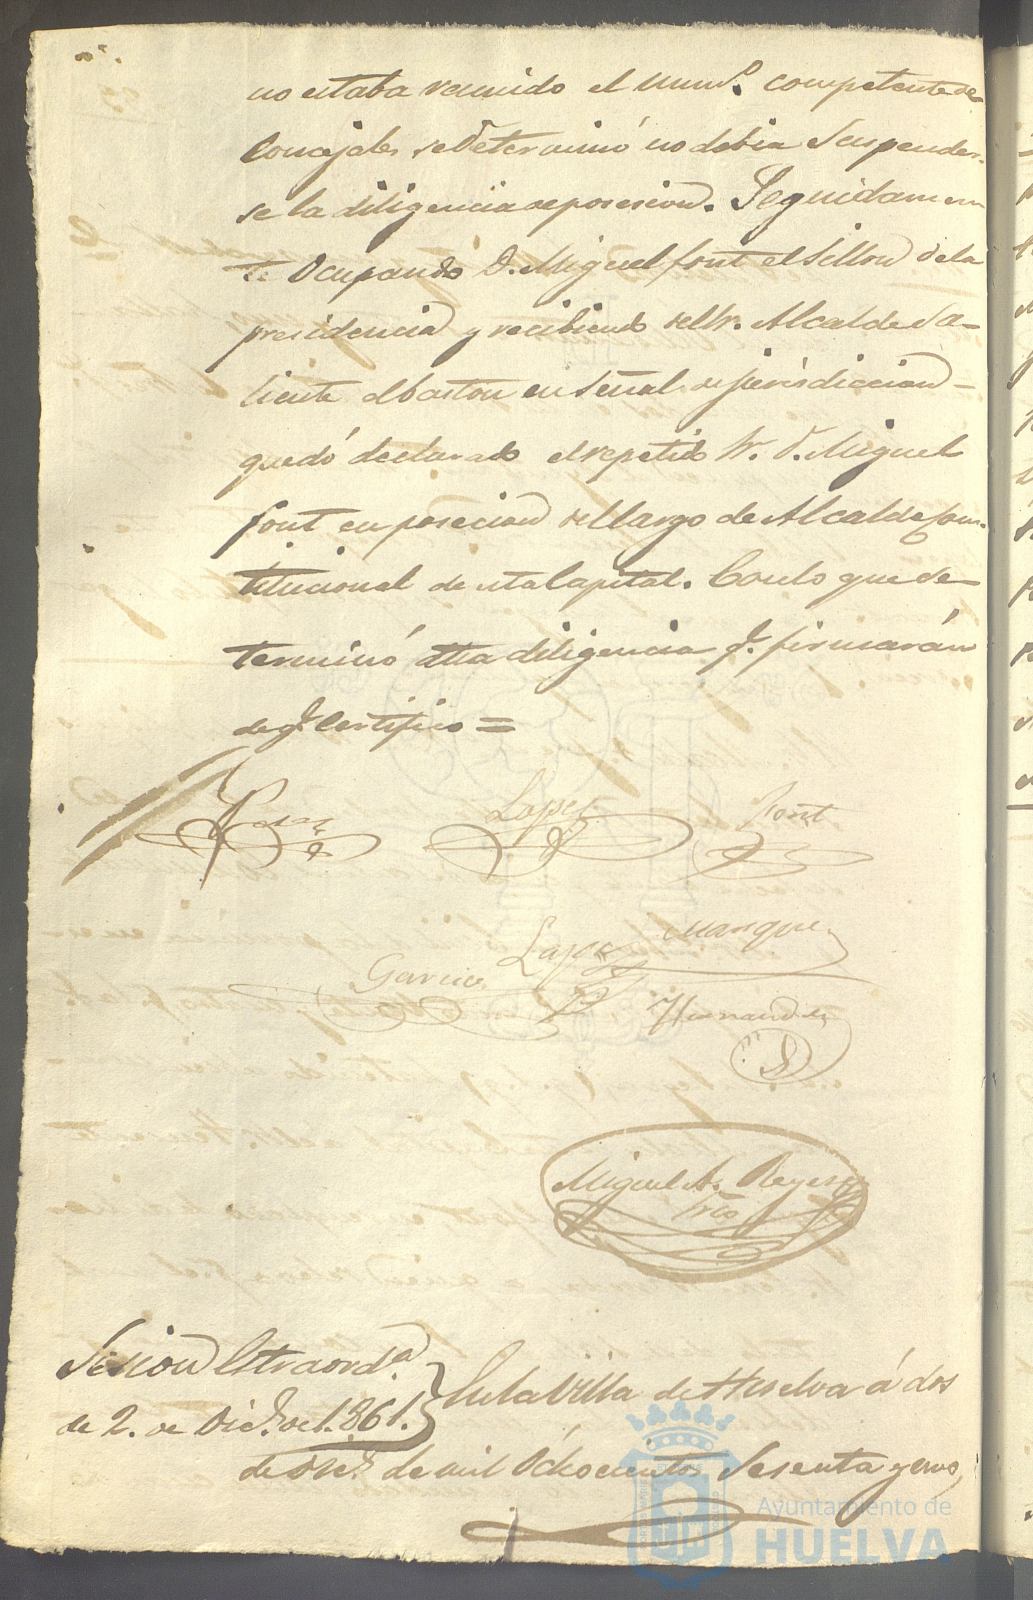 no estaba reunido el numº. competente de
Concejales se determinó no debia Suspender-
se la diligencia de posesion. Seguidamen
te Ocupando D. Miguel font el Sillon de la
presidencia y recibiendo del Sr. Alcalde Sa-
liente el baston en Señal de jurisdiccion
quedó declarado el repetido Sr. D. Miguel
font en posecion del Cargo de Alcalde Cons-
titucional de esta Capital. Con lo que se
terminó esta diligencia q. firmarán
de q. Certifico =
Lopez
font
Lopez
Marquez
Garcia
Hernandez
Miguel A. Reyes
Srio
Sesion Estraordª.
de 2. de Dice. de 1.861.
En la Villa de Huelva á dos
de Dice. de mil Ochocientos Sesenta y uno,
Ayuntamiento de
HUELVA